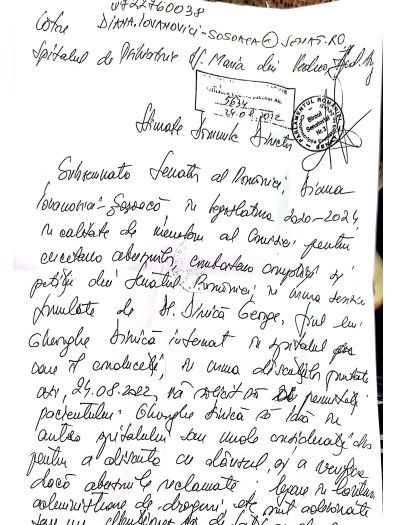 0722760038
Către DIANA.IOVANOVICI-SOSOACA@SENAT.RO
Spitalul de Psihiatrie Sf. Maria din Vedea, Jud. Ag
5634
24.08.2022
PARLAMENTUL ROMÂNIEI
Biroul Senatorial
Stimate Domnule Director
Subsemnata Senator al României, Diana
Iovanovici-Șoșoacă în legislatura 2020-2024,
în calitate de membru al Comisiei pentru
cercetarea abuzurilor, combaterea corupției și
petiții din Senatul României, în urma
formulate de Dl. Dincă George, fiul lui
Gheorghe Dincă internat în spitalul
care îl conduceți, în urma discuțiilor purtate
azi, 24.08.2022, vă solicit să permiteți
pacientului Gheorghe Dincă să iasă în
curtea spitalului sau unde considerați
pentru a discuta cu dânsul și a verifica
dacă abuzurile reclamate: legare
administrare de droguri, etc sunt adevărate
sau